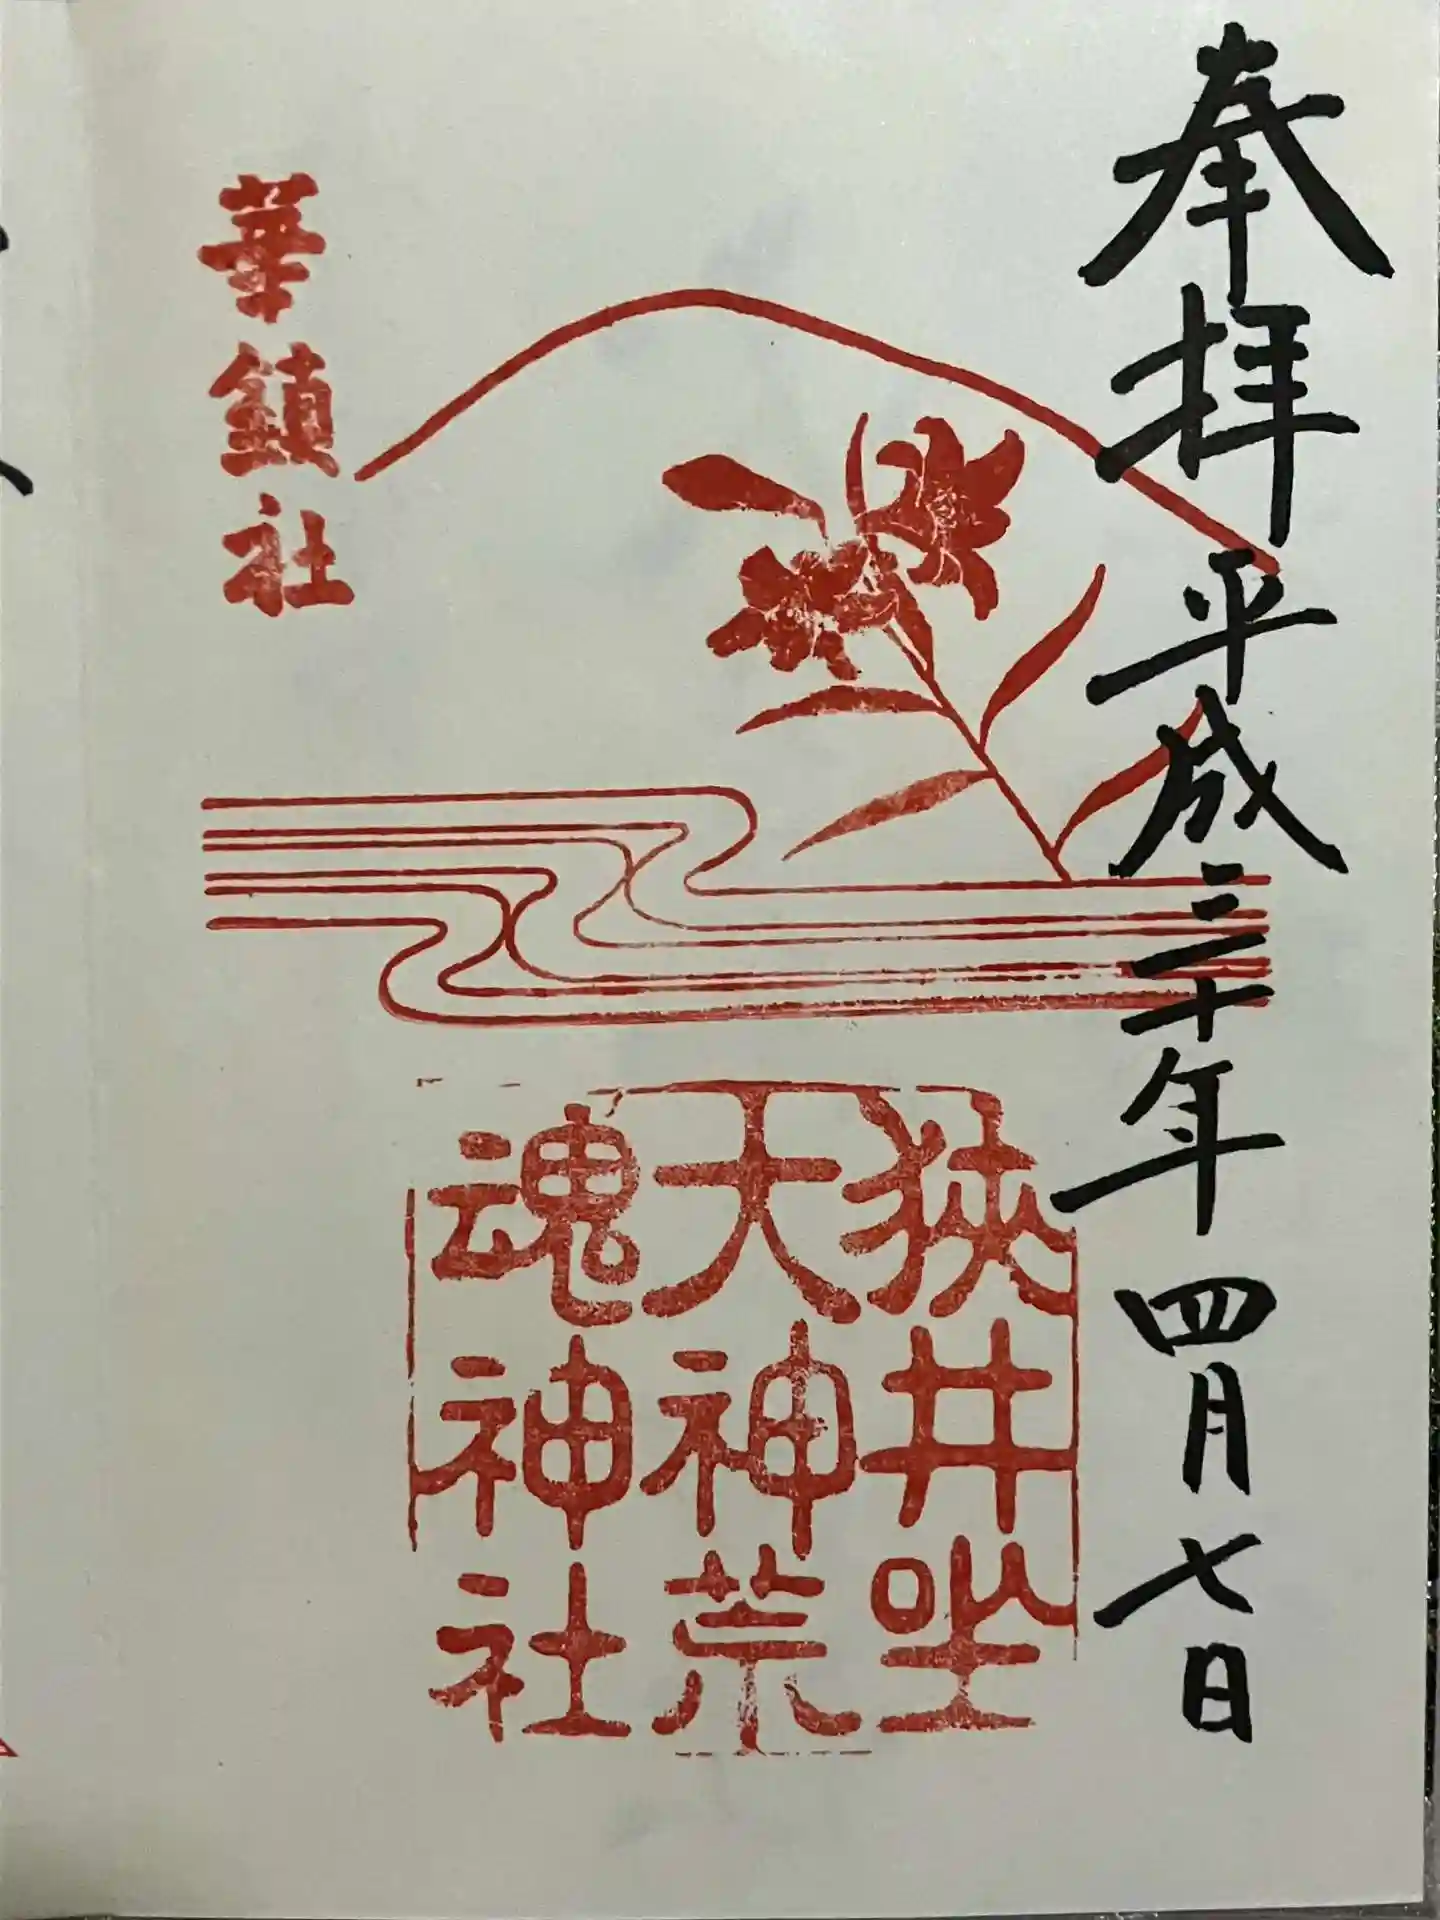 奉拝 平成三十年 四月七日
狭井坐
大神荒
魂神社
華鎮社